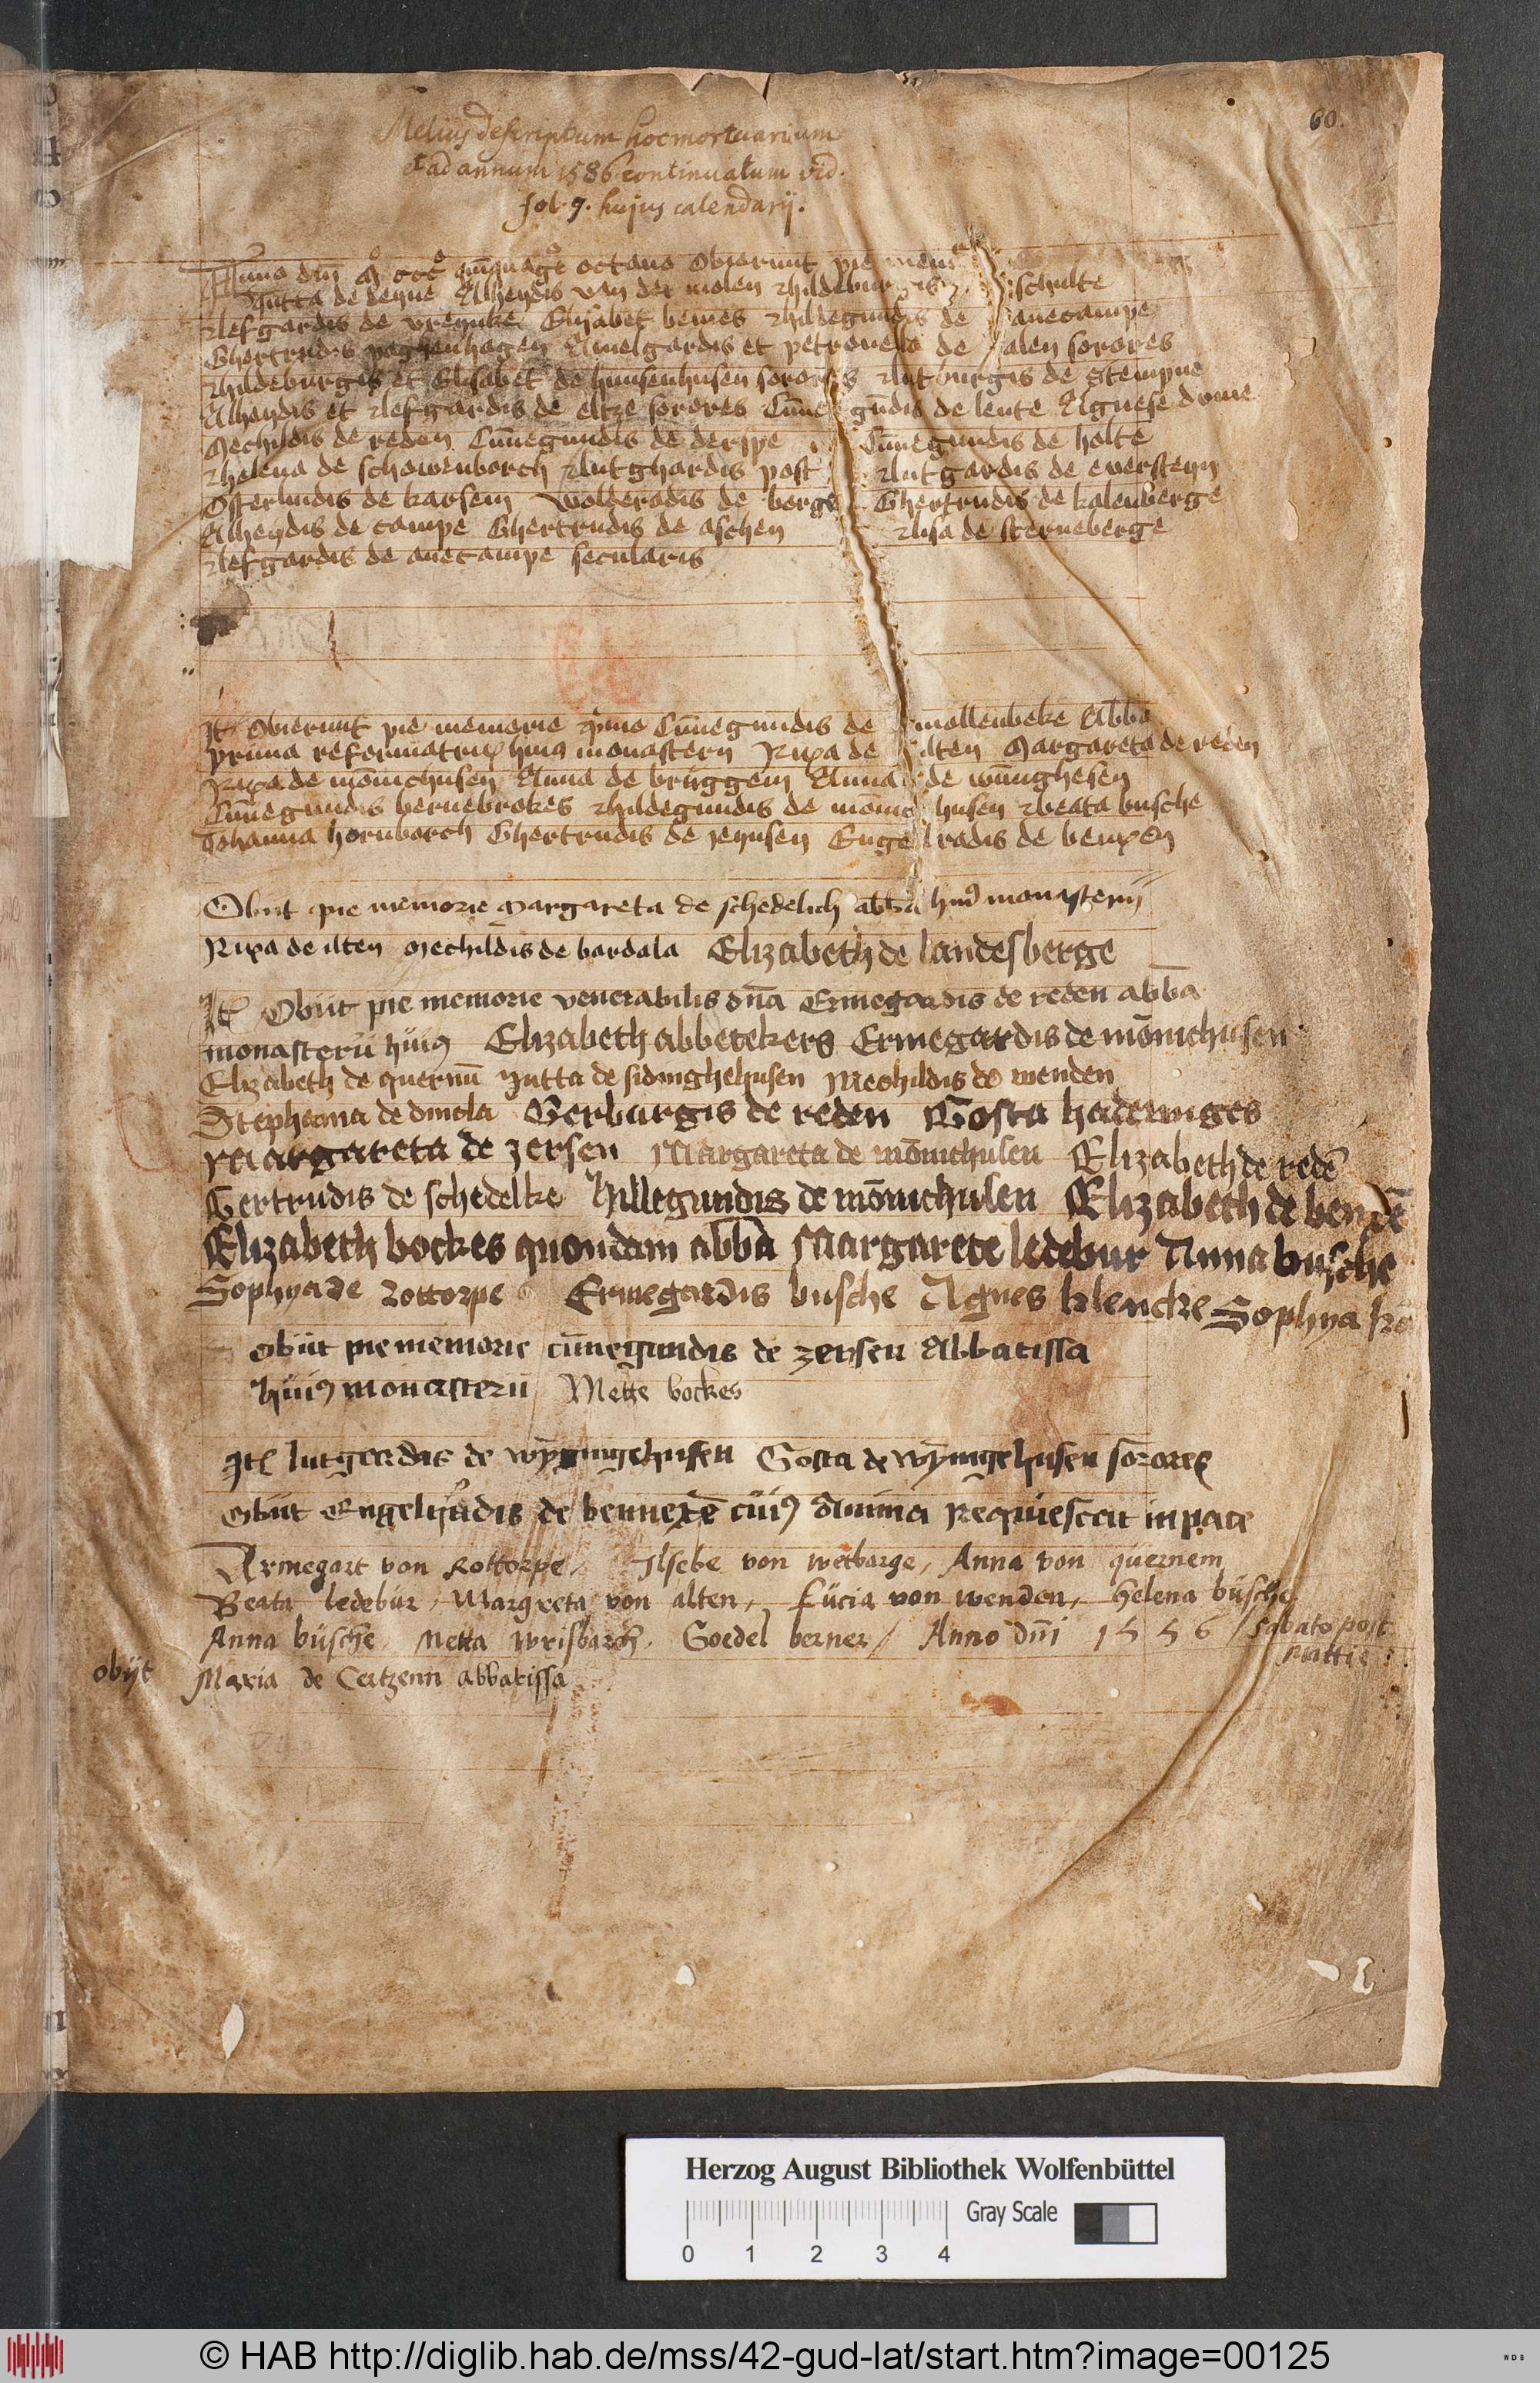 60.
Melius descriptum hoc mortuarium
et ad annum 1586 continuatum vid.
fol. 9. hujus calendarij.
Anno dm̄ octavo Obierunt pie mem
Jutta de Alheydis van der molen hildeburgis schulte
lefgardis de Elisabet hildegundis de avecampe
Ghertrudis hagen Amelgardis et petronella de alen sorores
hildeburgis et Elisabet de hunsenhusen sorores lutburgis de stempne
Alheydis et lefgardis de eltze sorores Cūnegūdis de lente Agnese dome
Mechildis de reden Cūnegundis de Cūnegundis de holte
helena de schowenborch lutghardis post lutgardis de eversteyn
Osterlindis de karsem wolderadis de berge Ghertrudis de kalenberge
Alheydis de campe Ghertrudis de aschen lisa de sterneberge
lefgardis de avecampe secularis
Jt̄ Obierunt pie memorie p̄mo Cūnegundis de mollenbeke Abb̄a
prima reformatrix huiꝰ monasterii Rixa de ilten Margareta de reden
Rixa de mōnichusen Anna de bruggem Anna de wūnighesen
Cūnegundis bernebrokes hildegundis de mōnichusen beata busche
Johanna hornborch Ghertrudis de jeynsen Engelradis de benxen
Obiit pie memorie Margareta de schedelich abb̄a huiꝰ monasterij
Rixa de ilten Mechildis de bardala Elizabeth de landesberge
Jt̄ Obiit pie memorie venerabilis dn̄a Ermegardis de reden abb̄a
monasterii huiꝰ Elizabeth abbetekers Ermegardis de mōnichusen
Elizabeth de quernū Jutta de sidinghehusen Mechildis de wenden
Stephana de Gerburgis de reden Gosta hadewiges
Margareta de zersen Margareta de mōnichusen Elizabeth de redē
Gertrudis de schedelke hillegundis de mōnichusen Elizabeth de
Elizabeth bockes quondam abb̄a Margarete ledebur Anna busche
Sophya de Rottorpe Ermegardis busche Agnes klencke Sophya
Obiit pie memorie cūnegundis de zersen Abbatissa
huiꝰ monasterii Mette bockes
Jt̄ lutgardis de wȳningehusen Gosta de wȳningehusen sorores
Obiit Engelradis de bennexē cuiꝰ Anima Requiescat in pace
Armegart von Rottorpe, Ilsebe von wetbarge, Anna von quernem
Beata ledebür, Margreta von alten, Lücia von wenden, Helena büsche
Anna büsche, Metta wrisbarch, Goedel berner / Anno dn̄i 1556 / sabato post
obijt Maria de Abbatissa
Herzog August Bibliothek Wolfenbüttel
Gray Scale
0 1 2 3 4
© HAB http://diglib.hab.de/mss/42-gud-lat/start.htm?image=00125
WDB